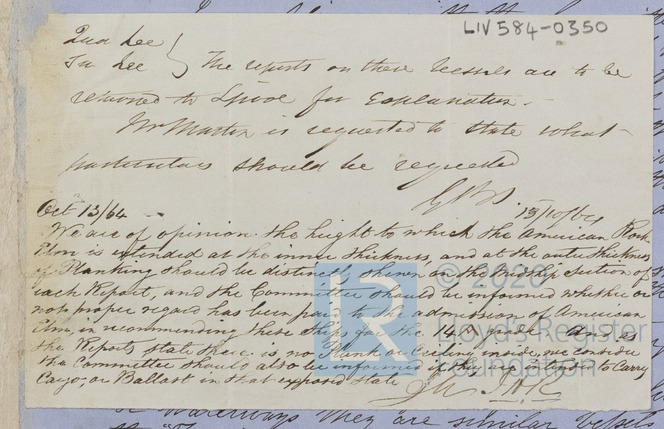 LIV 584-0350
Lee
Lee } The reports on these Vessels are to be
returned to Lpool for Explanation.
Mr Martin is requested to state what
particulars should be requested
13/10/64
Oct 13/64
We are of opinion the height to which the American Rock
Elm is extended at the inner thickness, and at the outer thickness
of Planking should be distinctly shewn on the midship section of
each Report, and the Committee should be informed whether or
not proper regard has been paid to the admission of American
Elm, in recommending these Ships for the 14 A Grade. And, as
the Reports state there is no Plank or Ceiling inside, we consider
the Committee should also be informed if they intend to Carry
Cargo, or Ballast in that exposed state
© 2020
LR
Lloyd's Register
Foundation
or Waterways they are similar